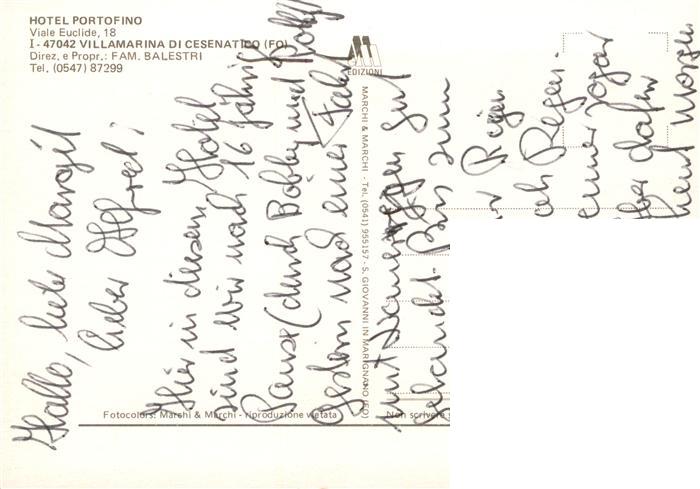 HOTEL PORTOFINO
Viale Euclide, 18
I - 47042 VILLAMARINA DI CESENATICO (FO)
Direz. e Propr.: FAM. BALESTRI
Tel. (0547) 87299
EDIZIONI
MARCHI & MARCHI - Tel. (0541) 955157 - S. GIOVANNI IN MARIGNANO (FO)
Fotocolors: Marchi & Marchi - riproduzione vietata
Non scrivere
Hallo, liebe Margit
lieber Alfred!
Hier in diesem Hotel
sind wir nach 16 jährig
Pause (durch Bobby und
gestern nach einer
gut
gelandet. Bis zum
Regen
Regen
sogar
dafür
heut Morgen